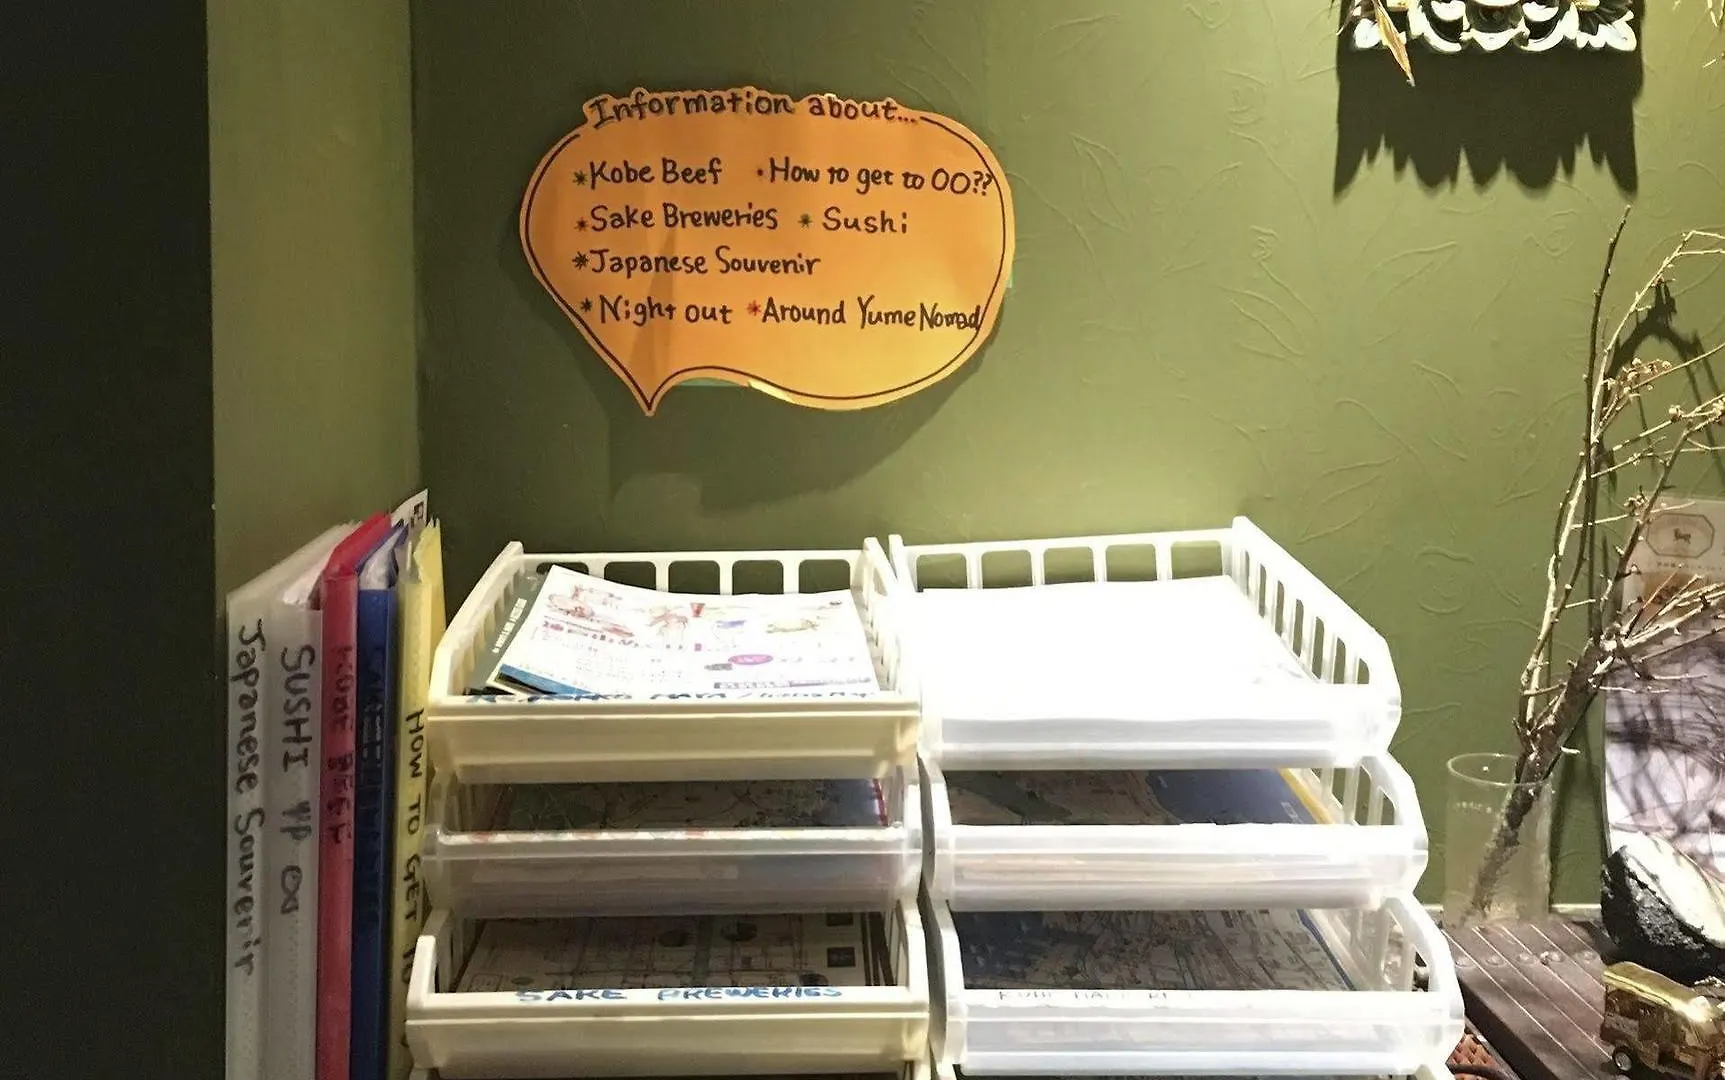 Information about...
*Kobe Beef ・How to get to OO??
*Sake Breweries * Sushi
*Japanese Souvenir
*Night out *Around Yume Nomad
Japanese Souvenir
SUSHI
KOBE BEEF
HOW TO GET TO
SAKE BREWERIES